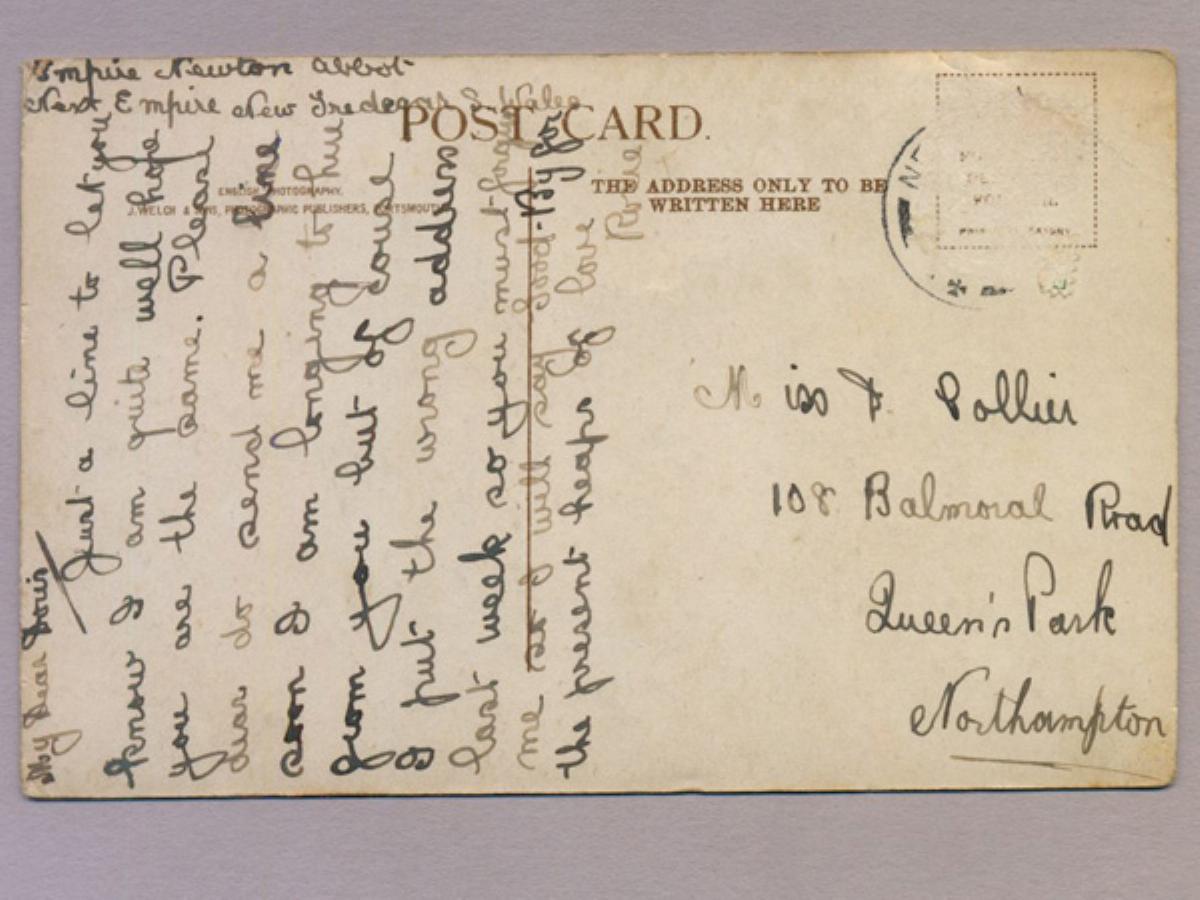 Empire Newton Abbot
Next Empire New Tredegar S. Wales
POST CARD.
ENGLISH PHOTOGRAPHY.
J. WELCH & SONS, PHOTOGRAPHIC PUBLISHERS, PORTSMOUTH
THE ADDRESS ONLY TO BE
WRITTEN HERE
My Dear Doris
Just a line to let you
know I am quite well hope
you are the same. Please
dear do send me a line
soon I am longing to hear
from you but of course
I put the wrong address
last week so you must forgive
me so I will say Good-By for
the present heaps of love
Rosie
Miss D. Collier
108 Balmoral Road
Queen's Park
Northampton